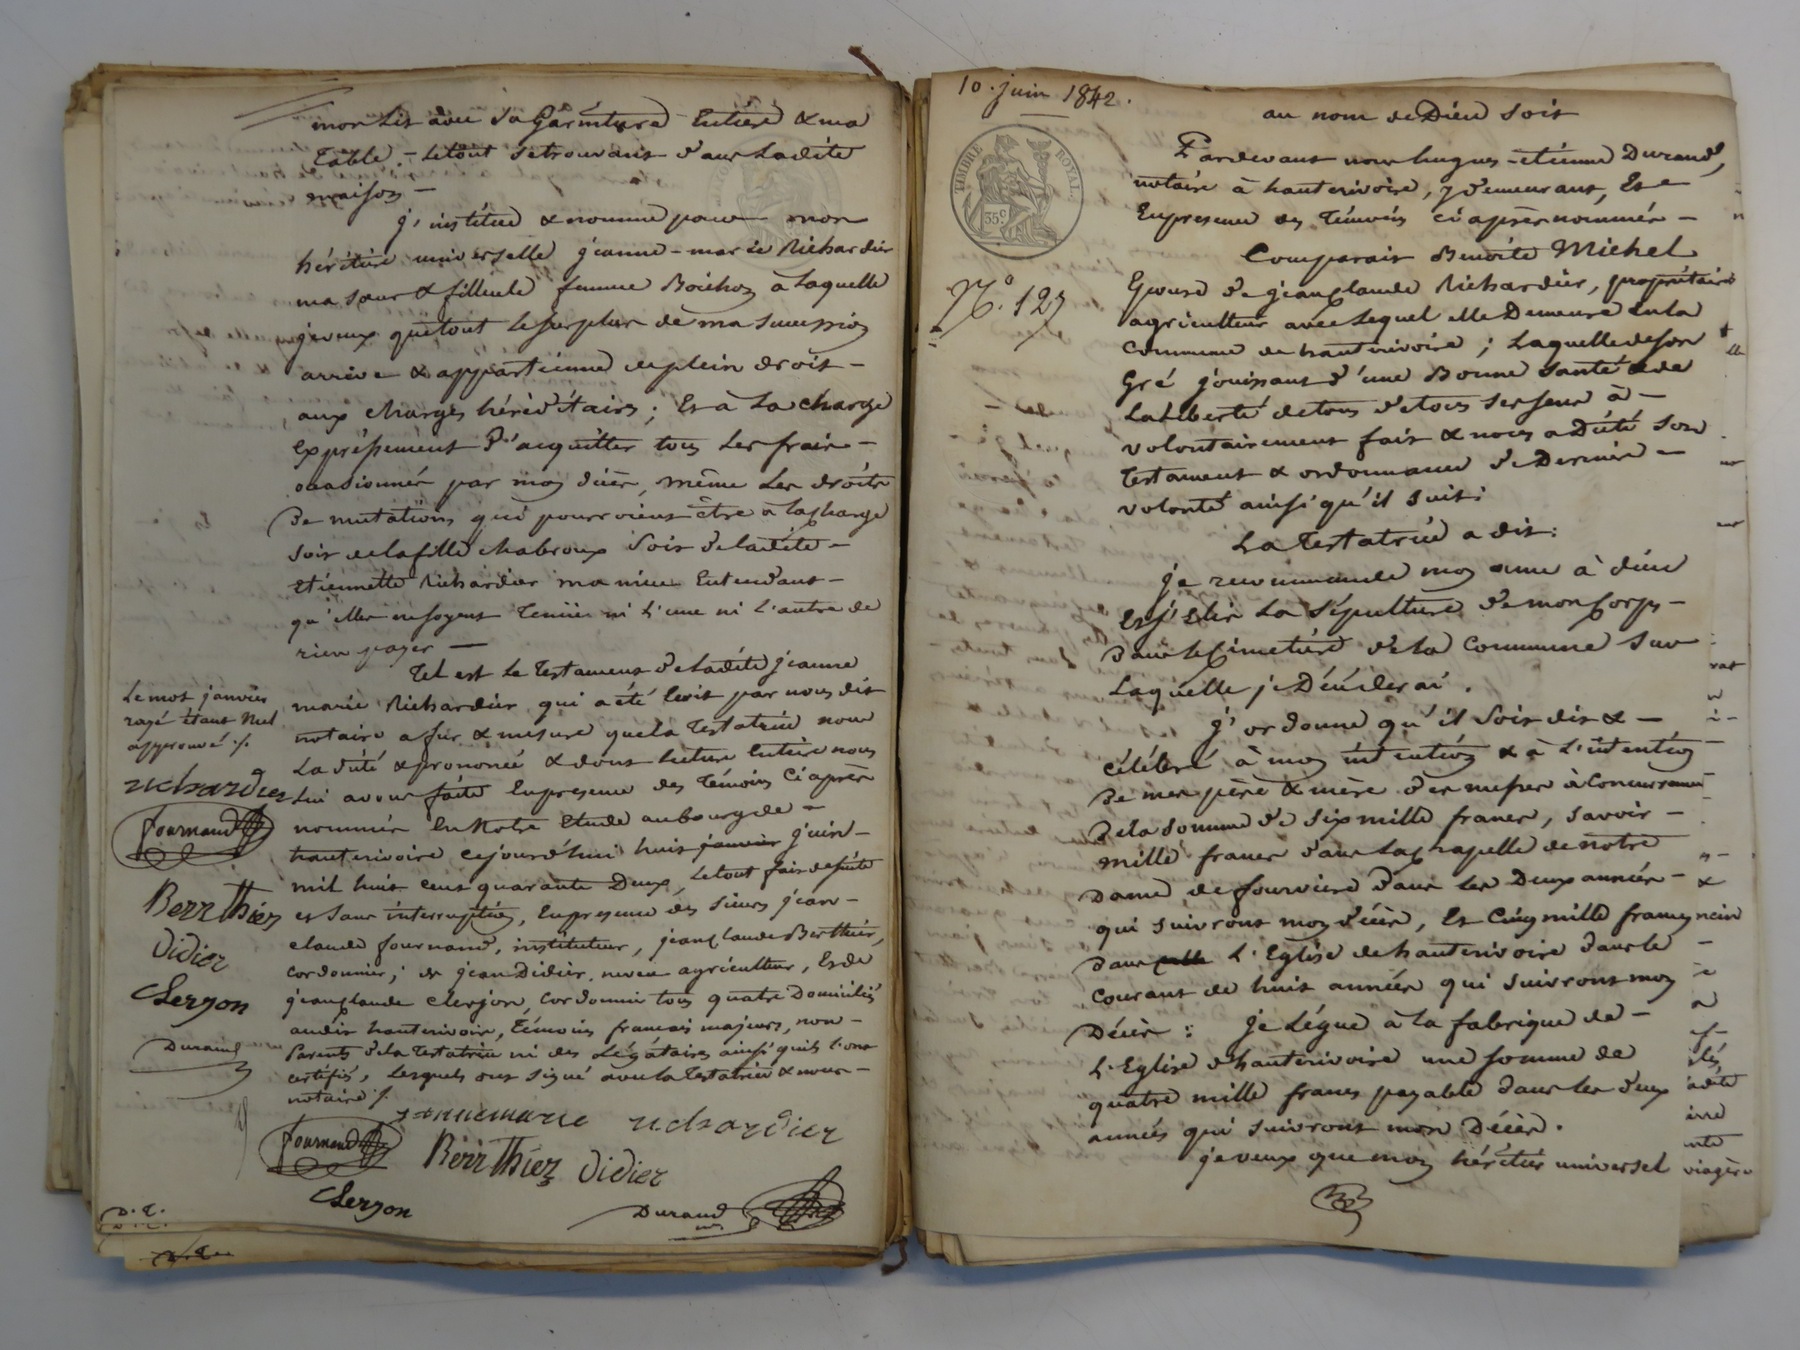 mon lit avec sa Garniture Entière & ma
Table. - Letout setrouvant dans Ladite
maison -
j'institue & nomme pour mon
héritière universelle jeanne-marie Richardier
ma sœur & filleule femme Boichon à Laquelle
jeveux quetout lesurplus de ma succession
arrive & appartienne deplein droit -
aux charges héréditaires ; Et à La charge
Expressément d'acquitter tous Les frais -
occasionnés par mon décès, même Les droits
De mutations qui pourroient être à lacharge
Soit delafille chabroux Soit deladite -
Etiennette Richardier ma nièce Entendant -
qu'elles nesoyent Tenües ni L'une ni L'autre de
rien payer -
Tel est Le Testament deladite jeanne
marie Richardier qui a été Ecrit par nous dit
notaire a fur & mesure quela Testatrice nous
La dicté & prononcé & dont lecture Entière nous
Lui avons faite Enpresence des Témoins Ci après
nommés En notre Etude aubourg de -
hauterivoire cejourd'hui huit janvier juin -
mil huit cent quarante Deux, Letout fait desuite
et Sans interruption, Enpresence des Sieurs jean -
claude fournand, instituteur, jeanclaude Berthier,
Cordonnier ; de jean Didier, neveu agriculteur, Et de
jeanclaude clerjon, Cordonnier tous quatre Domiciliés
audit hauterivoire, Témoins français majeurs, non -
Parents dela Testatrice ni des Légataires ainsi quils l'ont
certifié, Lesquels ont signé avec la Testatrice & nous -
notaire ./.
Le mot janvier
rayé étant nul
approuvé ./.
richardier
fournand
Berrthiez
Didier
Clerjon
Durand
jeannemarie richardier
fournand Berrthiez Didier
Clerjon Durand
D. E.
10. juin 1842.
TIMBRE ROYAL.
35c
N.º 127
au nom de Dieu Soit
Pardevant nous hugues-etienne Durand,
notaire à hauterivoire, y demeurant, Et -
Enpresence des Témoins ci après nommés -
Comparait Benoite Michel
Epouse de jeanclaude Richardier, propriétaire
agriculteur avec Lequel elle Demeure En la
Commune de hauterivoire ; Laquelle deson
Gré jouissant d'une Bonne Santé & de
La Liberté detous detous ses sens à -
volontairement fait & nous a Dicté Son
Testament & ordonnance de Dernière -
volonté ainsi qu'il suit :
La Testatrice a dit :
je recommande mon ame à dieu
Et j'Elis La Sépulture de mon Corps -
Dans le Cimetière dela Commune Sur
Laquelle je Décèderai.
j'ordonne qu'il Soit dit & -
célébré à mon intention & à L'intention
De mes père & mère des messes à Concurrence
Dela Somme de Six mille francs, Savoir -
mille francs dans La chapelle de notre
Dame de fourvière Dans Les Deux années -
qui suivront mon décès, Et Cinq mille francs
Dans L'Eglise de hauterivoire Dans le
Courant de huit années qui suivront mon
Décès : je Lègue à La fabrique de -
L'Eglise d'hauterivoire une Somme de
quatre mille francs payable dans les deux
années qui suivront mon Décès.
je veux que mon héritier universel